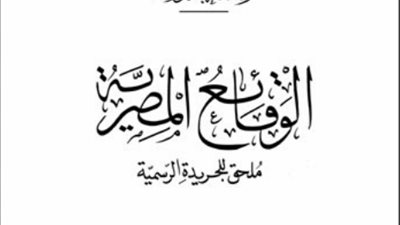 الوقائع المصرية
ملحق للجريدة الرسمية